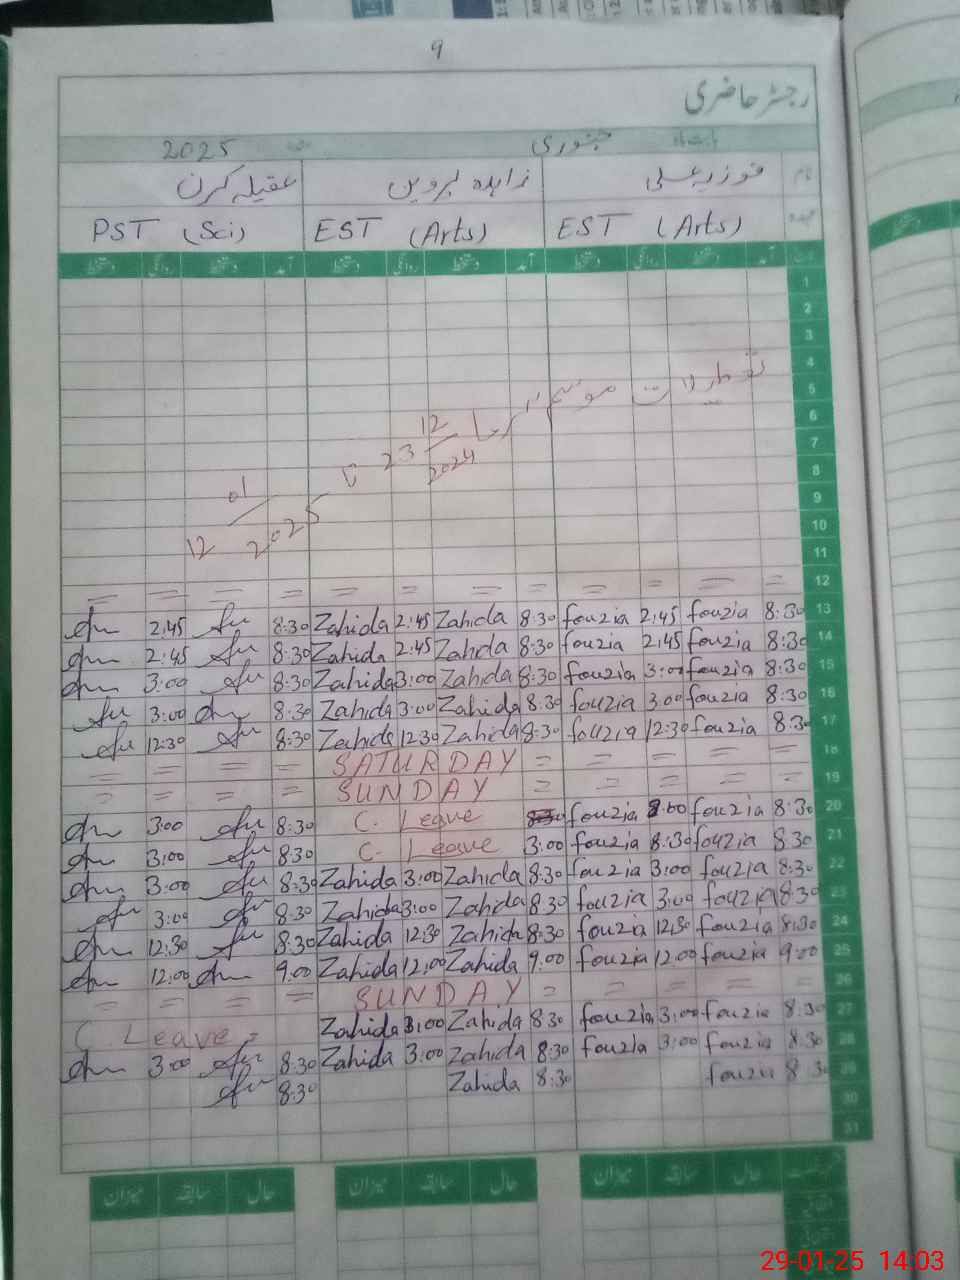 9
رجسٹر حاضری
جنوری 2025
نام فوزیہ علی زاہدہ پروین عقیلہ کرن
عہدہ EST (Arts) EST (Arts) PST (Sci)
آمد دستخط روانگی دستخط آمد دستخط روانگی دستخط آمد دستخط روانگی دستخط
1
2
3
4
5
6
7
8
9
10
11
تعطیلات موسم سرما 23/12/2024 تا 12/01/2025
= = = = = = = = = = = = 12
2:45 8:30 Zahida 2:45 Zahida 8:30 fouzia 2:45 fouzia 8:30 13
2:45 8:30 Zahida 2:45 Zahida 8:30 fouzia 2:45 fouzia 8:30 14
3:00 8:30 Zahida 3:00 Zahida 8:30 fouzia 3:00 fouzia 8:30 15
3:00 8:30 Zahida 3:00 Zahida 8:30 fouzia 3:00 fouzia 8:30 16
12:30 8:30 Zahida 12:30 Zahida 8:30 fouzia 12:30 fouzia 8:30 17
= = = = SATURDAY = = = = = 18
= = = = SUNDAY = = = = = 19
3:00 8:30 C. Leave fouzia 3:00 fouzia 8:30 20
3:00 8:30 C. Leave 3:00 fouzia 8:30 fouzia 8:30 21
3:00 8:30 Zahida 3:00 Zahida 8:30 fouzia 3:00 fouzia 8:30 22
3:00 8:30 Zahida 3:00 Zahida 8:30 fouzia 3:00 fouzia 8:30 23
12:30 8:30 Zahida 12:30 Zahida 8:30 fouzia 12:30 fouzia 8:30 24
12:00 9:00 Zahida 12:00 Zahida 9:00 fouzia 12:00 fouzia 9:00 25
= = = = SUNDAY = = = = = 26
C. Leave = Zahida 3:00 Zahida 8:30 fouzia 3:00 fouzia 8:30 27
3:00 8:30 Zahida 3:00 Zahida 8:30 fouzia 3:00 fouzia 8:30 28
8:30 Zahida 8:30 fouzia 8:30 29
30
31
حال سابقہ میزان حال سابقہ میزان حال سابقہ میزان
29-01-25 14:03